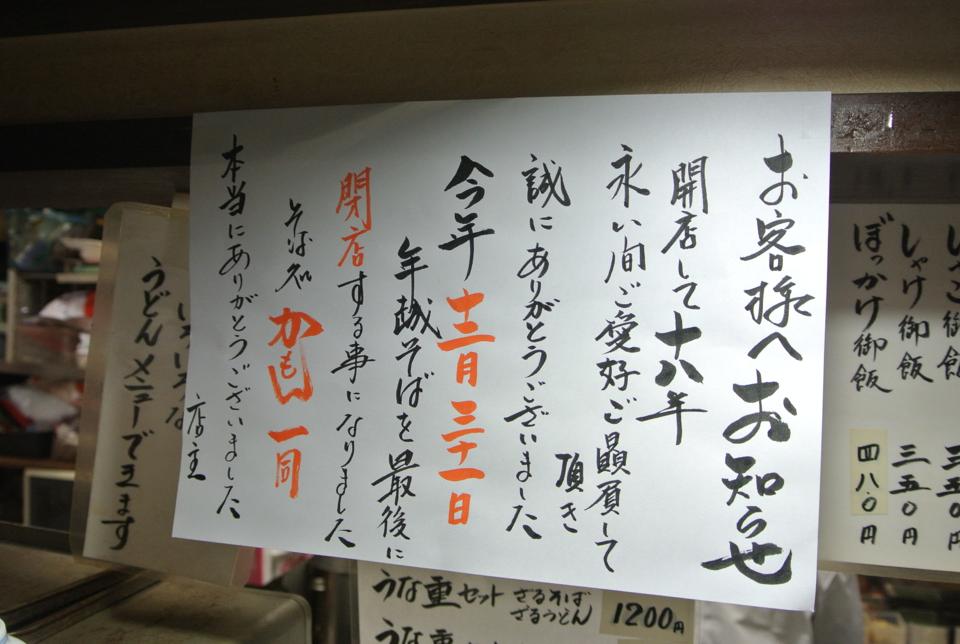 お客様へお知らせ
開店して十八年
永い間ご愛好ご贔屓して
頂き
誠にありがとうございました
今年十二月三十一日
年越そばを最後に
閉店する事になりました
そば処かもし一同
本当にありがとうございました
店主
しゃけ御飯 三五〇円
ぼっかけ御飯 四八〇円
いろいろな
うどんメニューできます
うな重セット ざるそば
ざるうどん 1200円
うな重